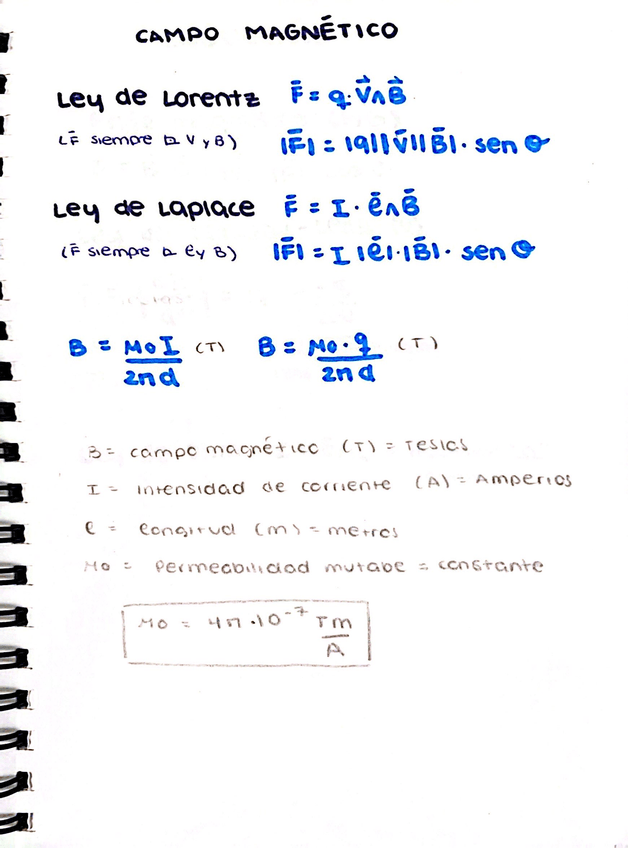 CAMPO MAGNÉTICO
Ley de Lorentz F̄ = q·V⃗∧B⃗
(F̄ siempre ⊾ V y B) |F̄| = |q||V̄||B̄|· sen θ
Ley de Laplace F̄ = I · ℓ̄∧B̄
(F̄ siempre ⊾ ℓ y B) |F̄| = I |ℓ̄|·|B̄|· sen θ
B = Mo I / 2πd (T) B = Mo · q / 2πd (T)
B = campo magnético (T) = Teslas
I = intensidad de corriente (A) = Amperios
ℓ = longitud (m) = metros
Mo = Permeabilidad mutabe = constante
Mo = 4π·10⁻⁷ Tm / A